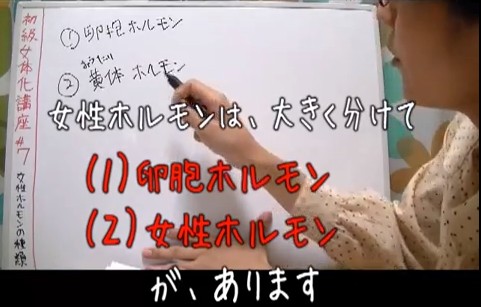 初級女体化講座#7
女性ホルモンの種類
①卵胞ホルモン
おうたい
②黄体ホルモン
女性ホルモンは、大きく分けて
(1)卵胞ホルモン
(2)女性ホルモン
が、あります